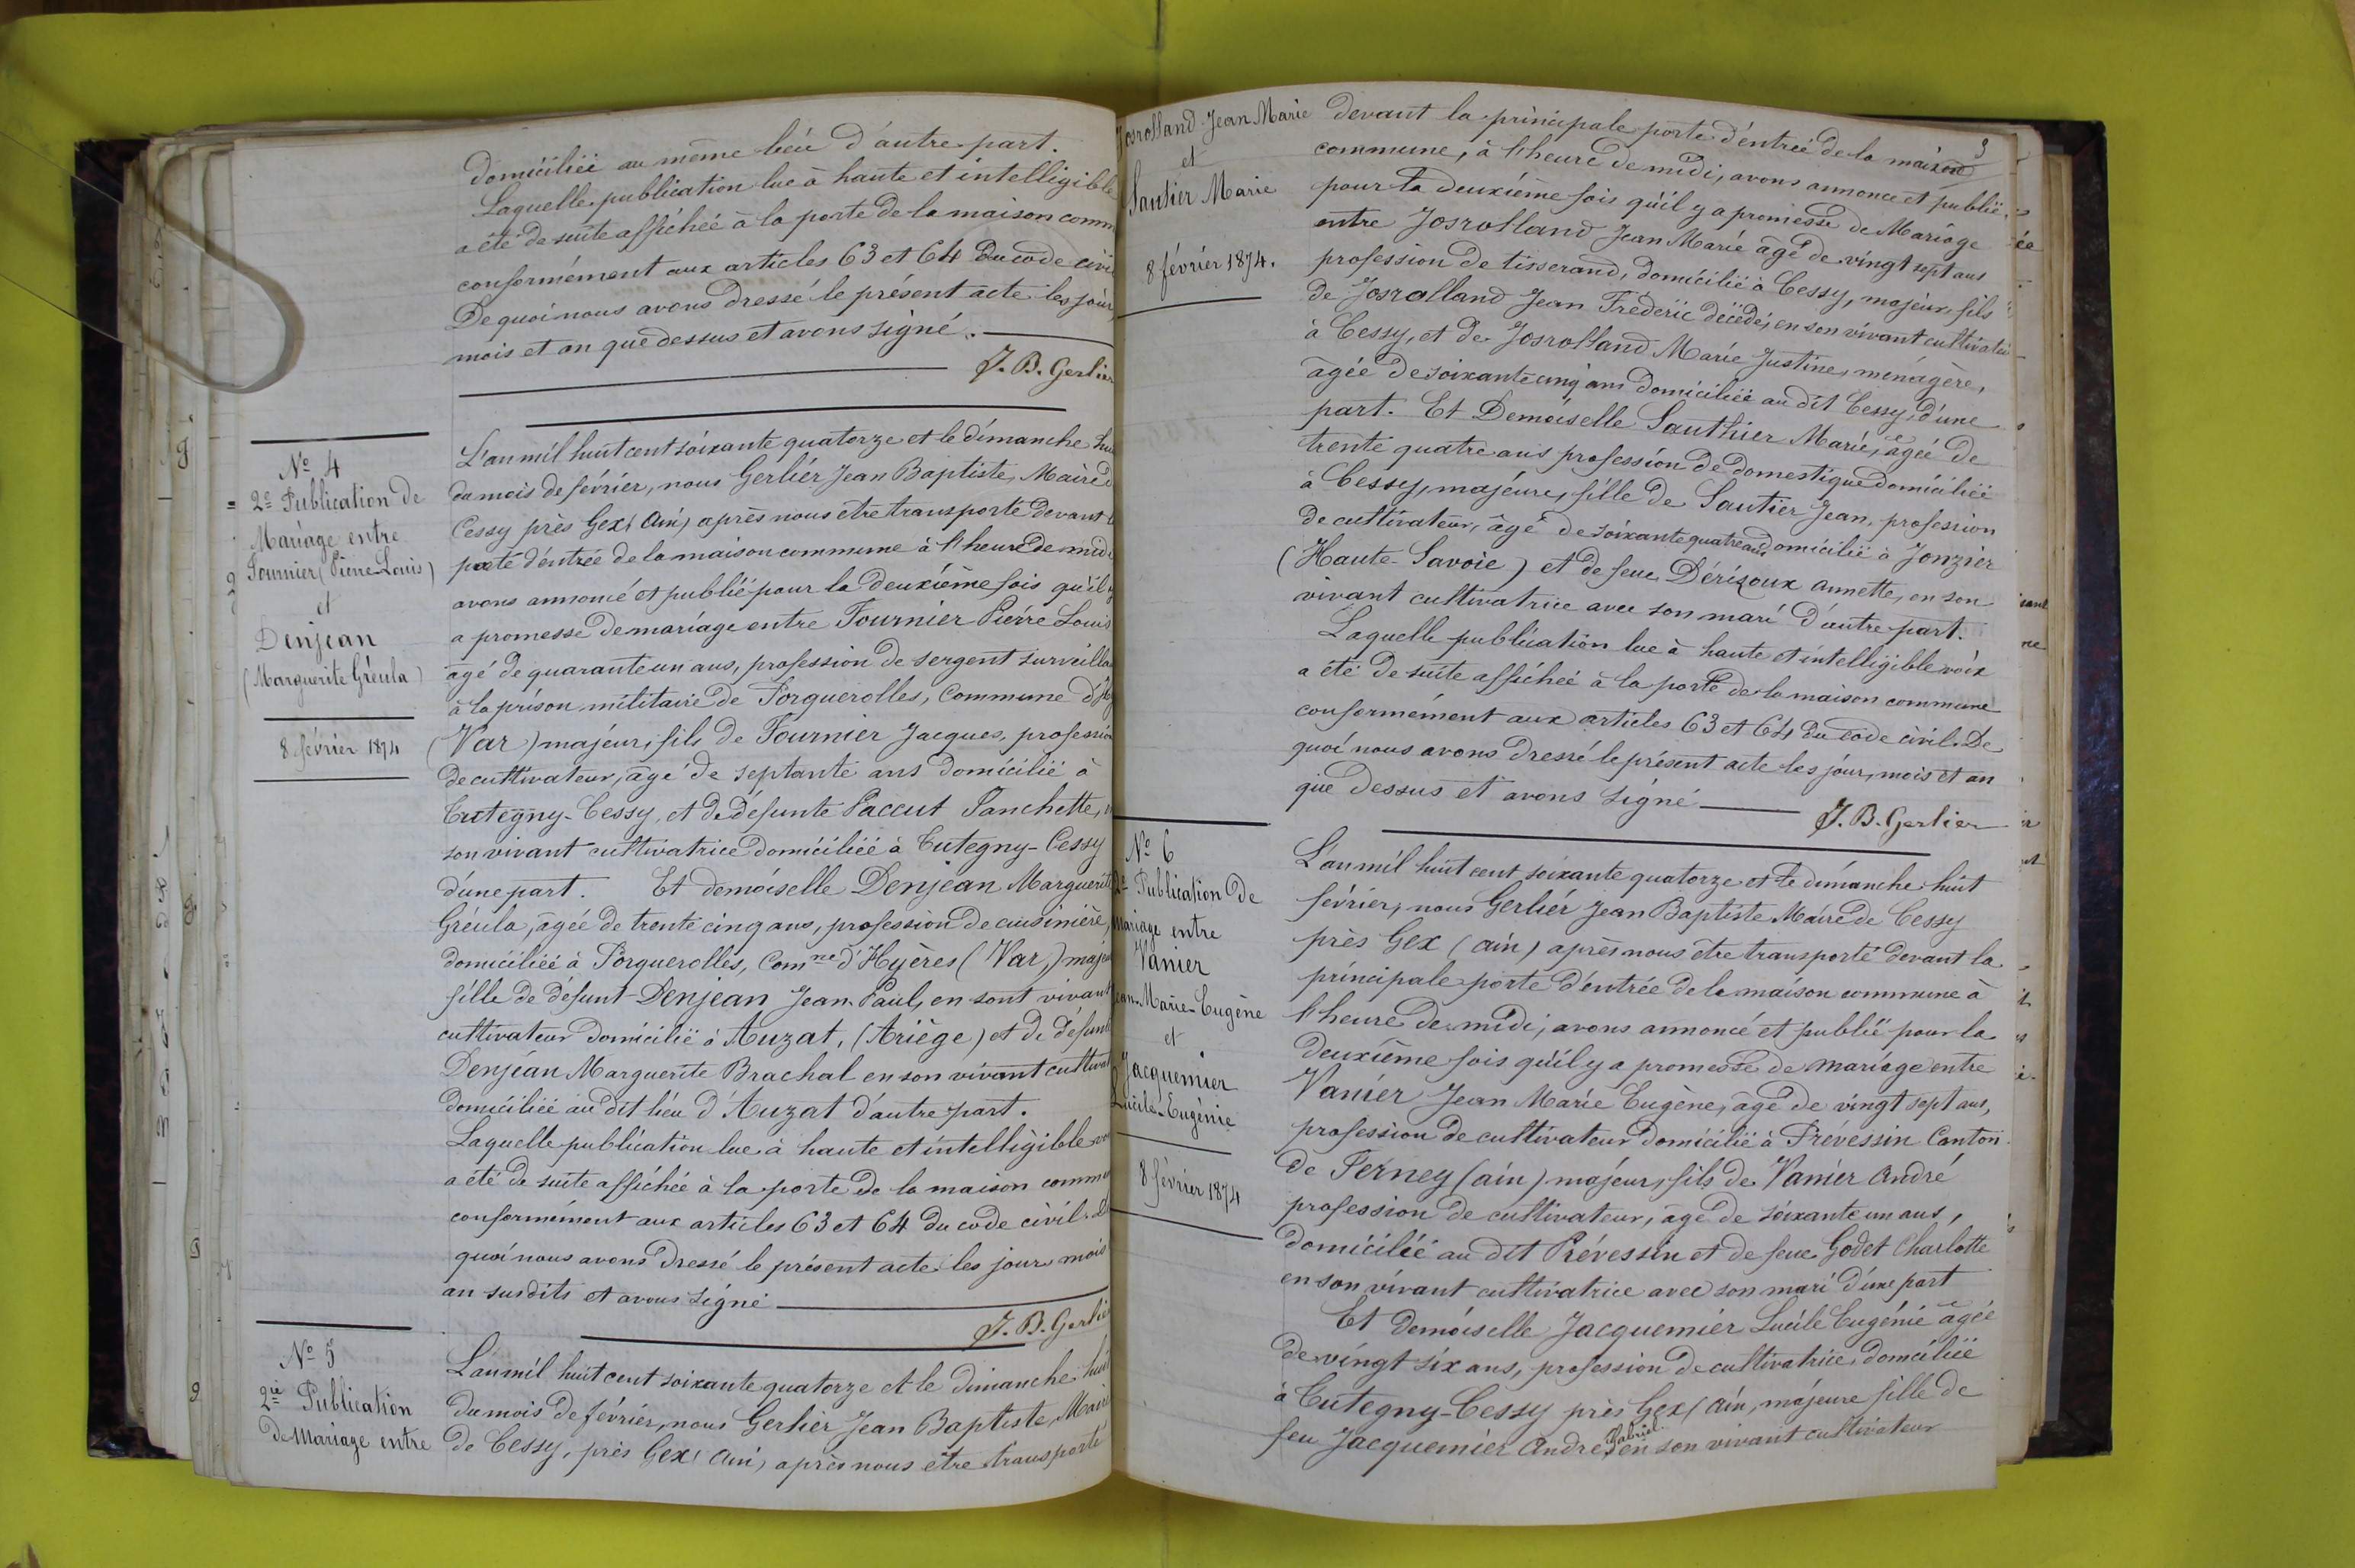 domiciliée au même lieu d'autre part.
Laquelle publication lue à haute et intelligible
a été de suite affichée à la porte de la maison comm
conformément aux articles 63 et 64 du code civi
De quoi nous avons dressé le présent acte les jour,
mois et an que dessus et avons signé.
J. B. Gerlier
Nº 4
2e Publication de
Mariage entre
Fournier (Pierre Louis)
et
Denjean
(Marguerite Gréula)
8 février 1874
L'an mil huit cent soixante quatorze et le dimanche hu
du mois de février, nous Gerlier Jean Baptiste, Maire d
Cessy près Gex (Ain) après nous être transporté devant l
porte d'entrée de la maison commune à l'heure de midi
avons annoncé et publié pour la deuxième fois qu'il y
a promesse de mariage entre Fournier Pierre Louis
âgé de quarante un ans, profession de sergent surveilla
à la prison militaire de Porquerolles, Commune d'Hy
(Var) majeur, fils de Fournier Jacques, profession
de cultivateur, âgé de septante ans domicilié à
Tutegny-Cessy, et de défunte Paccut Fanchette,
son vivant cultivatrice domiciliée à Tutegny-Cessy
d'une part. Et demoiselle Denjean Marguerite
Gréula, âgée de trente cinq ans, profession de cuisinière,
domiciliée à Porquerolles, Comne d'Hyères (Var,) maje
fille de défunt Denjean Jean Paul, en sont vivant
cultivateur domicilié à Auzat, (Ariège) et de défunte
Denjean Marguerite Brachal en son vivant cultivat
domiciliée au dit lieu d'Auzat d'autre part.
Laquelle publication lue à haute et intelligible vo
a été de suite affichée à la porte de la maison commu
conformément aux articles 63 et 64 du code civil. De
quoi nous avons dressé le présent acte les jour mois
an susdits et avons signé
J. B. Gerlie
Nº 5
2me Publication
de Mariage entre
L'an mil huit cent soixante quatorze et le dimanche huit
du mois de février, nous Gerlier Jean Baptiste, Maire
de Cessy, près Gex (Ain) après nous être transporté
3
Josrolland Jean Marie
et
Sautier Marie
8 février 1874.
devant la principale porte d'entrée de la maison
commune, à l'heure de midi, avons annoncé et publié
pour la deuxième fois qu'il y a promesse de Mariage
entre Josrolland Jean Marie âgé de vingt sept ans
profession de tisserand, domicilié à Cessy, majeur, fils
de Josrolland Jean Fréderic décédé, en son vivant cultivateur
à Cessy, et de Josrolland Marie Justine, ménagère,
âgée de soixante cinq ans domiciliée au dit Cessy, d'une
part. Et Demoiselle Sauthier Marie, âgée de
trente quatre ans profession de domestique domiciliée
à Cessy, majeure, fille de Sautier Jean, profession
de cultivateur, âgé de soixante quatre ans domicilié à Jonzier
(Haute-Savoie) et de feue Dérizoux Annette, en son
vivant cultivatrice avec son mari d'autre part.
Laquelle publication lue à haute et intelligible voix
a été de suite affichée à la porte de la maison commune
conformément aux articles 63 et 64 du code civil. De
quoi nous avons dressé le présent acte les jour, mois et an
que dessus et avons signé
J. B. Gerlier
Nº 6
2e Publication de
mariage entre
Vanier
Jean-Marie-Eugène
et
Jacquemier
Lucile-Eugénie
8 février 1874
L'an mil huit cent soixante quatorze et le dimanche huit
février, nous Gerlier Jean Baptiste Maire de Cessy
près Gex (Ain) après nous être transporté devant la
principale porte d'entrée de la maison commune à
l'heure de midi, avons annoncé et publié pour la
deuxième fois qu'il y a promesse de mariage entre
Vanier Jean Marie Eugène, âgé de vingt sept ans,
profession de cultivateur domicilié à Prévessin Canton
de Ferney (ain) majeur, fils de Vanier André
profession de cultivateur, âgé de soixante un ans,
domicilié au dit Prévessin et de feue Godet Charlotte
en son vivant cultivatrice avec son mari d'une part
Et demoiselle Jacquemier Lucile Eugénie âgée
de vingt six ans, profession de cultivatrice, domiciliée
à Tutegny-Cessy près Gex (Ain, majeure fille de
feu Jacquemier André Gabriel en son vivant cultivateur